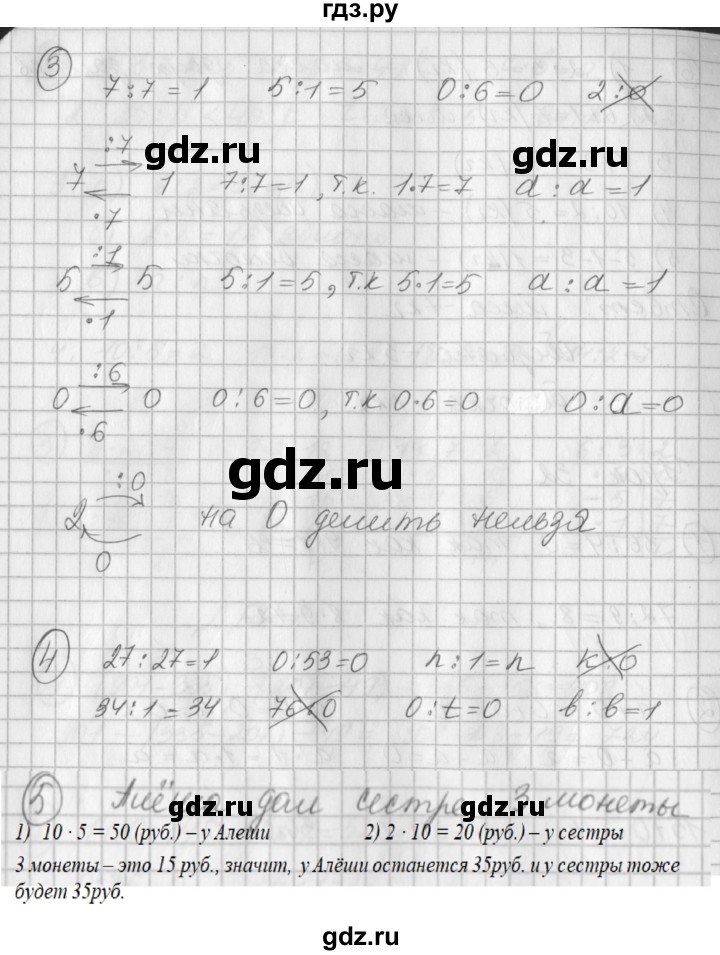 гдз.ру
3 7:7=1 5:1=5 0:6=0 2:0
:7 gdz.ru gdz.ru
7 1 7:7=1, т.к. 1·7=7 a:a=1
·7
:1
5 5 5:1=5, т.к 5·1=5 a:a=1
·1
:6
0 0 0:6=0, т.к 0·6=0 0:a=0
·6
gdz.ru
:0
2 на 0 делить нельзя
0
4 27:27=1 0:53=0 n:1=n k:0
34:1=34 76:0 0:t=0 b:b=1
5 Алёша дал сестре 3 монеты
1) 10 · 5 = 50 (руб.) – у Алеши 2) 2 · 10 = 20 (руб.) – у сестры
gdz.ru gdz.ru
3 монеты – это 15 руб., значит, у Алёши останется 35руб. и у сестры тоже
будет 35руб.
gdz.ru